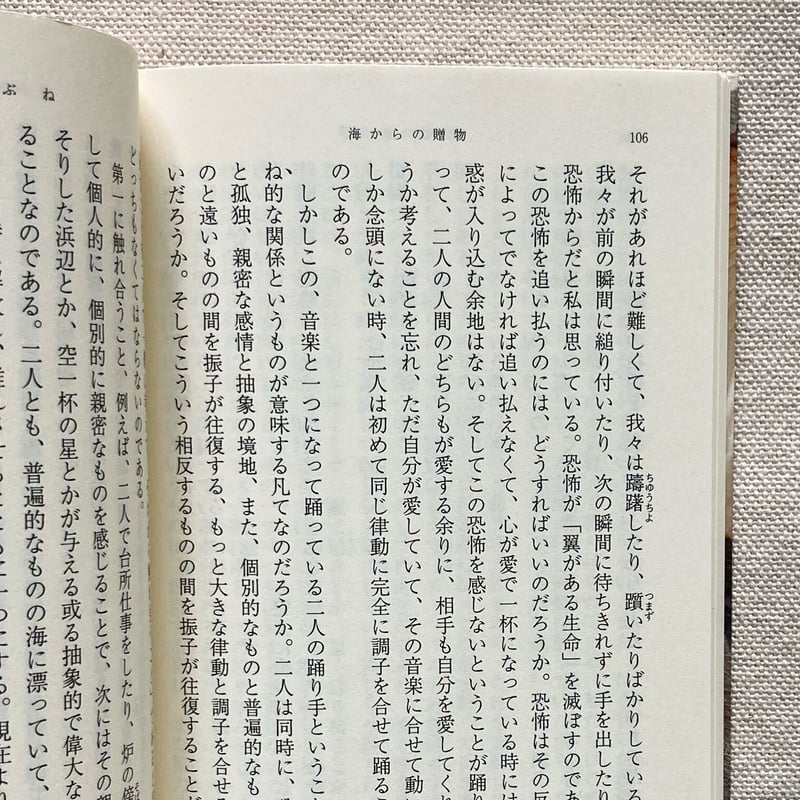 海からの贈物
106
それがあれほど難しくて、我々は躊躇したり、躓いたりばかりしている
ちゆうちよ
つまず
我々が前の瞬間に縋り付いたり、次の瞬間に待ちきれずに手を出したり
恐怖からだと私は思っている。恐怖が「翼がある生命」を滅ぼすのであ
この恐怖を追い払うのには、どうすればいいのだろうか。恐怖はその反
によってでなければ追い払えなくて、心が愛で一杯になっている時には
惑が入り込む余地はない。そしてこの恐怖を感じないということが踊り
って、二人の人間のどちらもが愛する余りに、相手も自分を愛してくれ
うか考えることを忘れ、ただ自分が愛していて、その音楽に合せて動い
しか念頭にない時、二人は初めて同じ律動に完全に調子を合せて踊るこ
のである。
しかしこの、音楽と一つになって踊っている二人の踊り手というこ
ね的な関係というものが意味する凡てなのだろうか。二人は同時に、
と孤独、親密な感情と抽象の境地、また、個別的なものと普遍的なも
のと遠いものの間を振子が往復する、もっと大きな律動と調子を合せ
いだろうか。そしてこういう相反するものの間を振子が往復することが
ぶね
どっちもなくてはならないのである。
第一に触れ合うこと、例えば、二人で台所仕事をしたり、炉の傍
して個人的に、個別的に親密なものを感じることで、次にはその親
そりした浜辺とか、空一杯の星とかが与える或る抽象的で偉大な
ることなのである。二人とも、普遍的なものの海に漂っていて、